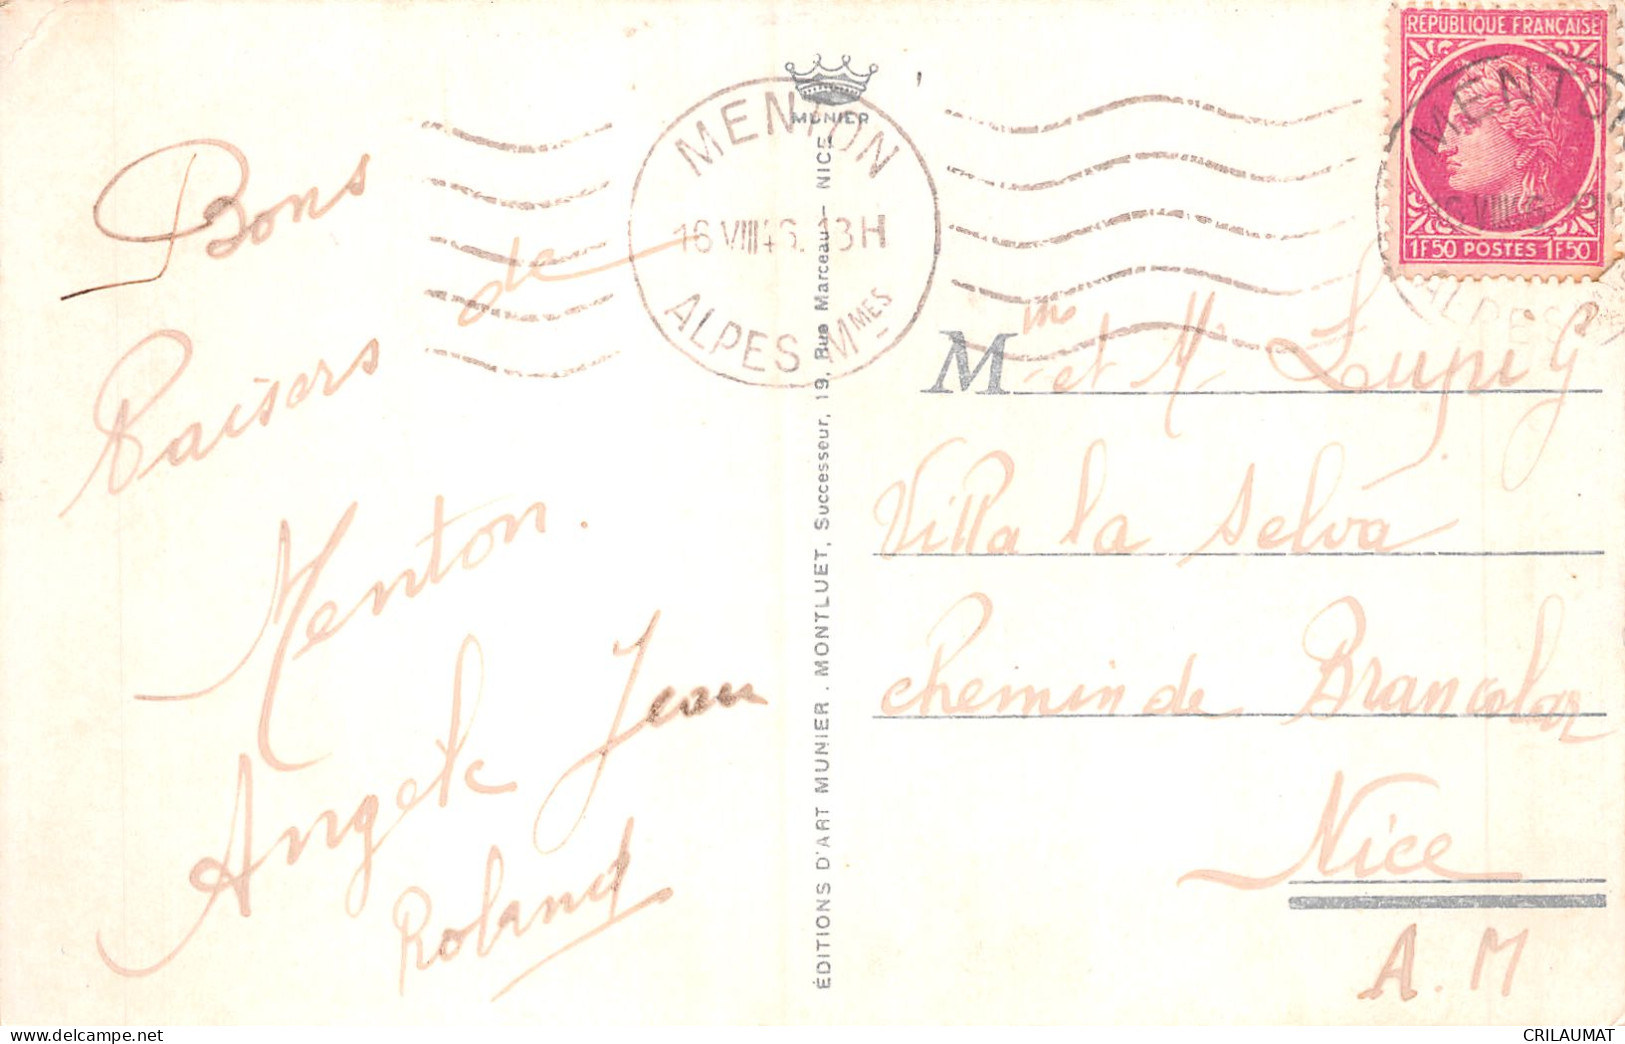 Bons
Baisers de
Menton.
Angèle Jean
Roland
MUNIER
MENTON
16 VIII 46. 13H
ALPES Mmes
ÉDITIONS D'ART MUNIER. MONTLUET, Successeur, 19, Rue Marceau - NICE
RÉPUBLIQUE FRANÇAISE
1F50 POSTES 1F50
MENTON
ALPES
Mme et Mr
Villa la Selva
chemin de Brancolar
Nice
A. M
delcampe.net
CRILAUMAT